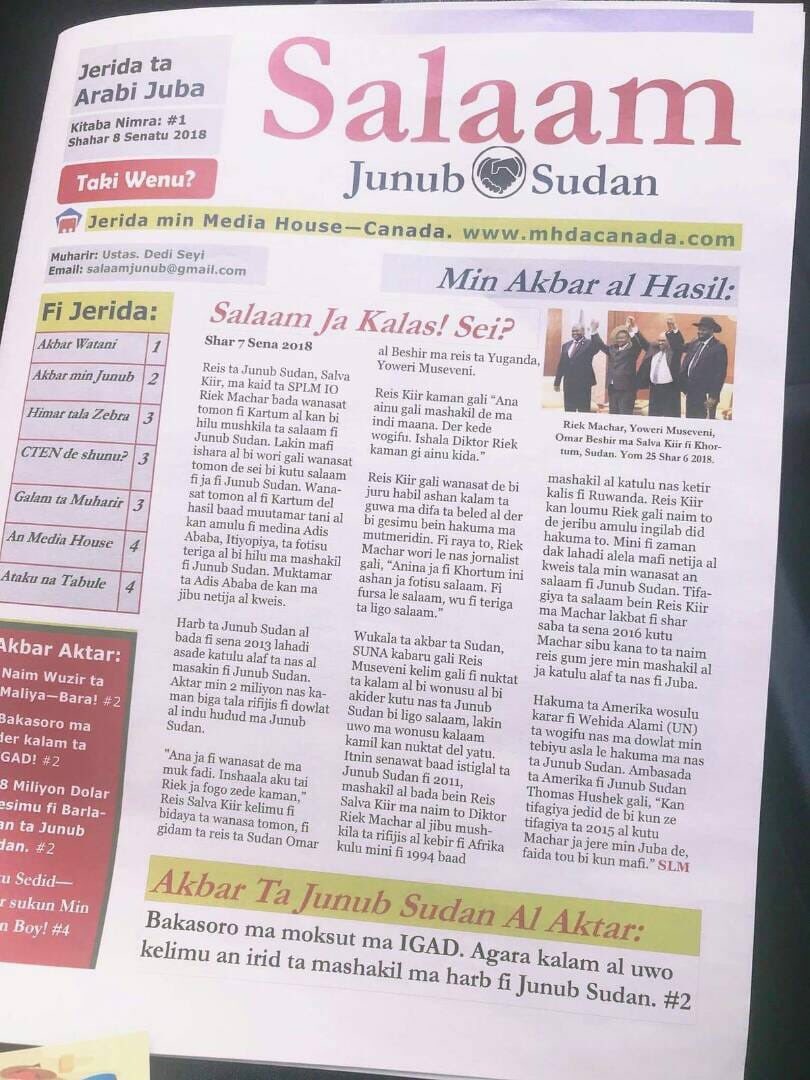 Jerida ta
Arabi Juba
Kitaba Nimra: #1
Shahar 8 Senatu 2018
Taki Wenu?
Salaam
Junub Sudan
Jerida min Media House—Canada. www.mhdacanada.com
Muharir: Ustas. Dedi Seyi
Email: salaamjunub@gmail.com
Min Akbar al Hasil:
Fi Jerida:
Akbar Watani 1
Akbar min Junub 2
Himar tala Zebra 3
CTEN de shunu? 3
Galam ta Muharir 3
An Media House 4
Ataku na Tabule 4
Akbar Aktar:
Naim Wuzir ta
Maliya—Bara! #2
Bakasoro ma
der kalam ta
IGAD! #2
8 Miliyon Dolar
esimu fi Barla-
an ta Junub
dan. #2
u Sedid—
r sukun Min
n Boy! #4
Salaam Ja Kalas! Sei?
Shar 7 Sena 2018
Reis ta Junub Sudan, Salva
Kiir, ma kaid ta SPLM IO
Riek Machar bada wanasat
tomon fi Kartum al kan bi
hilu mushkila ta salaam fi
Junub Sudan. Lakin mafi
ishara al bi wori gali wanasat
tomon de sei bi kutu salaam
fi ja fi Junub Sudan. Wana-
sat tomon al fi Kartum del
hasil baad muutamar tani al
kan amulu fi medina Adis
Ababa, Itiyopiya, ta fotisu
teriga al bi hilu ma mashakil
fi Junub Sudan. Muktamar
ta Adis Ababa de kan ma
jibu netija al kweis.
Harb ta Junub Sudan al
bada fi sena 2013 lahadi
asade katulu alaf ta nas al
masakin fi Junub Sudan.
Aktar min 2 miliyon nas ka-
man biga tala rifijis fi dowlat
al indu hudud ma Junub
Sudan.
"Ana ja fi wanasat de ma
muk fadi. Inshaala aku tai
Riek ja fogo zede kaman,"
Reis Salva Kiir kelimu fi
bidaya ta wanasa tomon, fi
gidam ta reis ta Sudan Omar
al Beshir ma reis ta Yuganda,
Yoweri Museveni.
Reis Kiir kaman gali “Ana
ainu gali mashakil de ma
indi maana. Der kede
wogifu. Ishala Diktor Riek
kaman gi ainu kida.”
Reis Kiir gali wanasat de bi
juru habil ashan kalam ta
guwa ma difa ta beled al der
bi gesimu bein hakuma ma
mutmeridin. Fi raya to, Riek
Machar wori le nas jornalist
gali, “Anina ja fi Khortum ini
ashan ja fotisu salaam. Fi
fursa le salaam, wu fi teriga
ta ligo salaam.”
Wukala ta akbar ta Sudan,
SUNA kabaru gali Reis
Museveni kelim gali fi nuktat
ta kalam al bi wonusu al bi
akider kutu nas ta Junub
Sudan bi ligo salaam, lakin
uwo ma wonusu kalaam
kamil kan nuktat del yatu.
Itnin senawat baad istiglal ta
Junub Sudan fi 2011,
mashakil al bada bein Reis
Salva Kiir ma naim to Diktor
Riek Machar al jibu mush-
kila ta rifijis al kebir fi Afrika
kulu mini fi 1994 baad
Riek Machar, Yoweri Museveni,
Omar Beshir ma Salva Kiir fi Khor-
tum, Sudan. Yom 25 Shar 6 2018.
mashakil al katulu nas ketir
kalis fi Ruwanda. Reis Kiir
kan loumu Riek gali naim to
de jeribu amulu ingilab did
hakuma to. Mini fi zaman
dak lahadi alela mafi netija al
kweis tala min wanasat an
salaam fi Junub Sudan. Tifa-
giya ta salaam bein Reis Kiir
ma Machar lakbat fi shar
saba ta sena 2016 kutu
Machar sibu kana to ta naim
reis gum jere min mashakil al
ja katulu alaf ta nas fi Juba.
Hakuma ta Amerika wosulu
karar fi Wehida Alami (UN)
ta wogifu nas ma dowlat min
tebiyu asla le hakuma ma nas
ta Junub Sudan. Ambasada
ta Amerika fi Junub Sudan
Thomas Hushek gali, “Kan
tifagiya jedid de bi kun ze
tifagiya ta 2015 al kutu
Machar ja jere min Juba de,
faida tou bi kun mafi.” SLM
Akbar Ta Junub Sudan Al Aktar:
Bakasoro ma moksut ma IGAD. Agara kalam al uwo
kelimu an irid ta mashakil ma harb fi Junub Sudan. #2